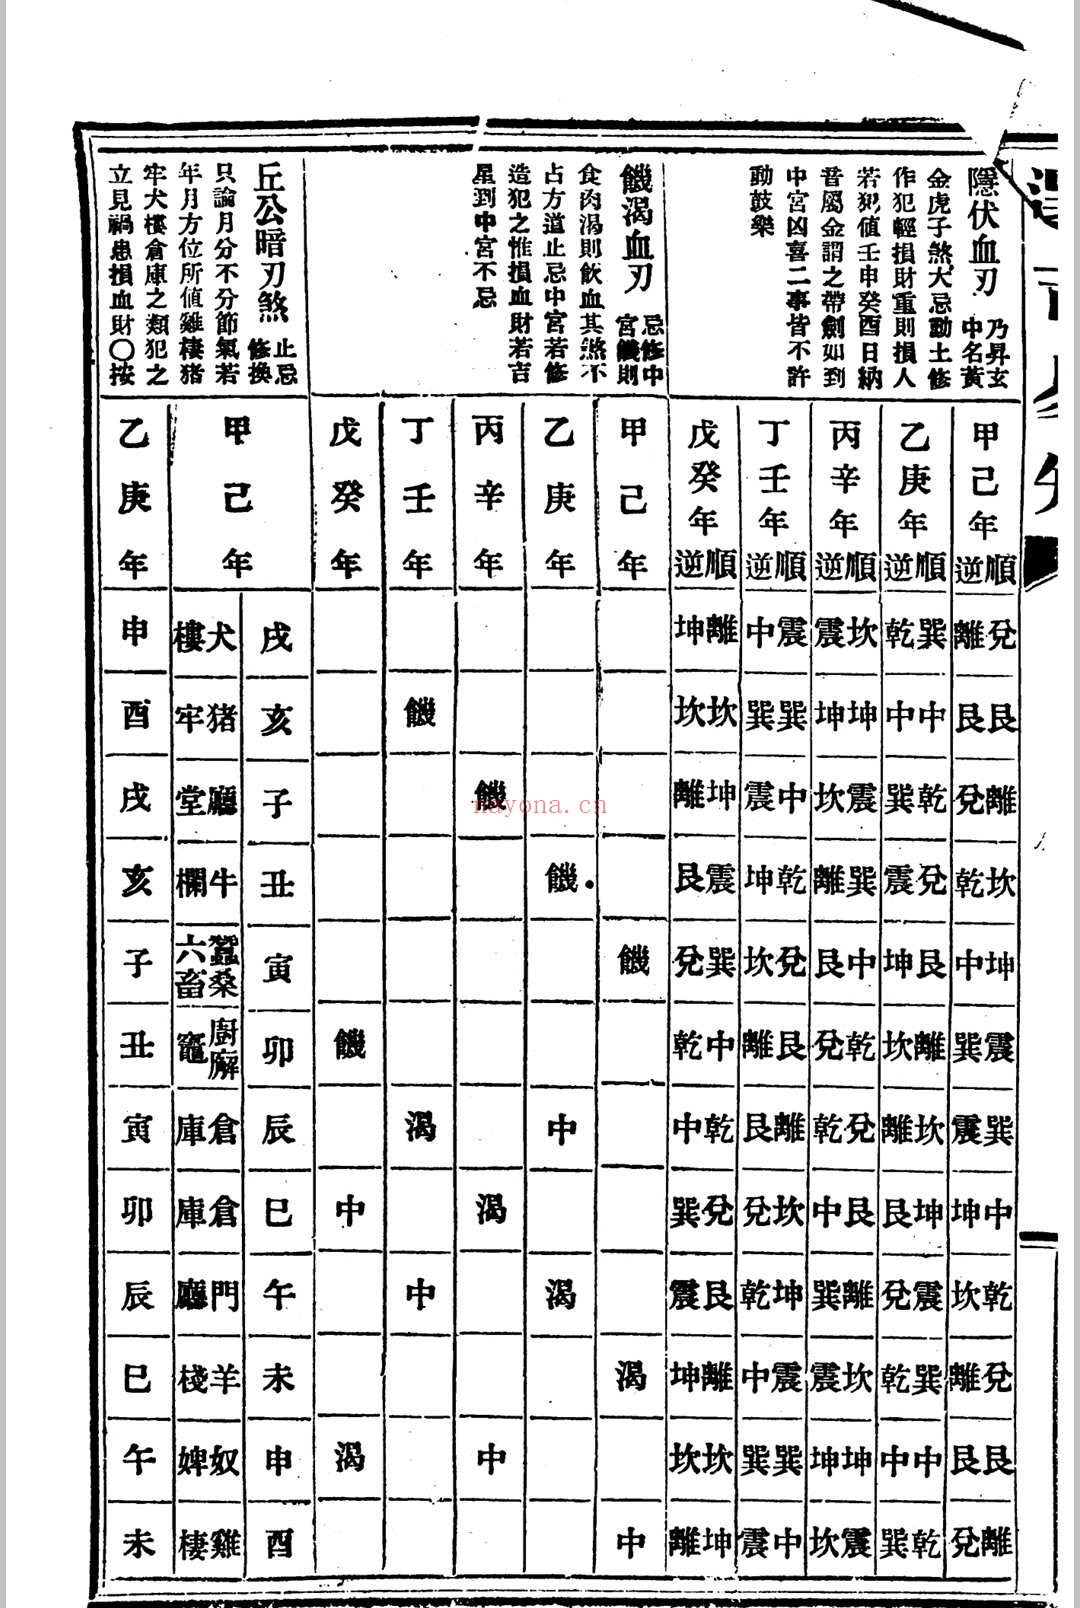 隱伏血刃 乃昇玄
中名黃
金虎子煞大忌動土修
作犯輕損財重則損人
若犯值壬申癸酉日納
音屬金謂之帶劍如到
中宮凶喜二事皆不許
動鼓樂
饑渴血刃 忌修中
宮饑則
食肉渴則飲血其煞不
占方道止忌中宮若修
造犯之惟損血財若吉
星到中宮不忌
丘公暗刃煞 止忌
修換
只論月分不分節氣若
年月方位所值雞棲猪
牢犬樓倉庫之類犯之
立見禍患損血財〇按
甲己年 順逆
兌離
艮艮
離兌
坎乾
坤中
震巽
巽震
中坤
乾坎
兌離
艮艮
離兌
乙庚年 順逆
巽乾
中中
乾巽
兌震
艮坤
離坎
坎離
坤艮
震兌
巽乾
中中
乾巽
丙辛年 順逆
坎震
坤坤
震坎
巽離
中艮
乾兌
兌乾
艮中
離巽
坎震
坤坤
震坎
丁壬年 順逆
震中
巽巽
中震
乾坤
兌坎
艮離
離艮
坎兌
坤乾
震中
巽巽
中震
戊癸年 順逆
離坤
坎坎
坤離
震艮
巽兌
中乾
乾中
兌巽
艮震
離坤
坎坎
坤離
甲己年
饑
渴
中
乙庚年
饑
中
渴
丙辛年
饑
渴
中
丁壬年
饑
渴
中
戊癸年
饑
中
渴
甲己年
戌
亥
子
丑
寅
卯
辰
巳
午
未
申
酉
犬樓
猪牢
廳堂
牛欄
蠶桑六畜
廚廨竈
倉庫
倉庫
門廳
羊棧
奴婢
雞棲
乙庚年
申
酉
戌
亥
子
丑
寅
卯
辰
巳
午
未
nayona.cn